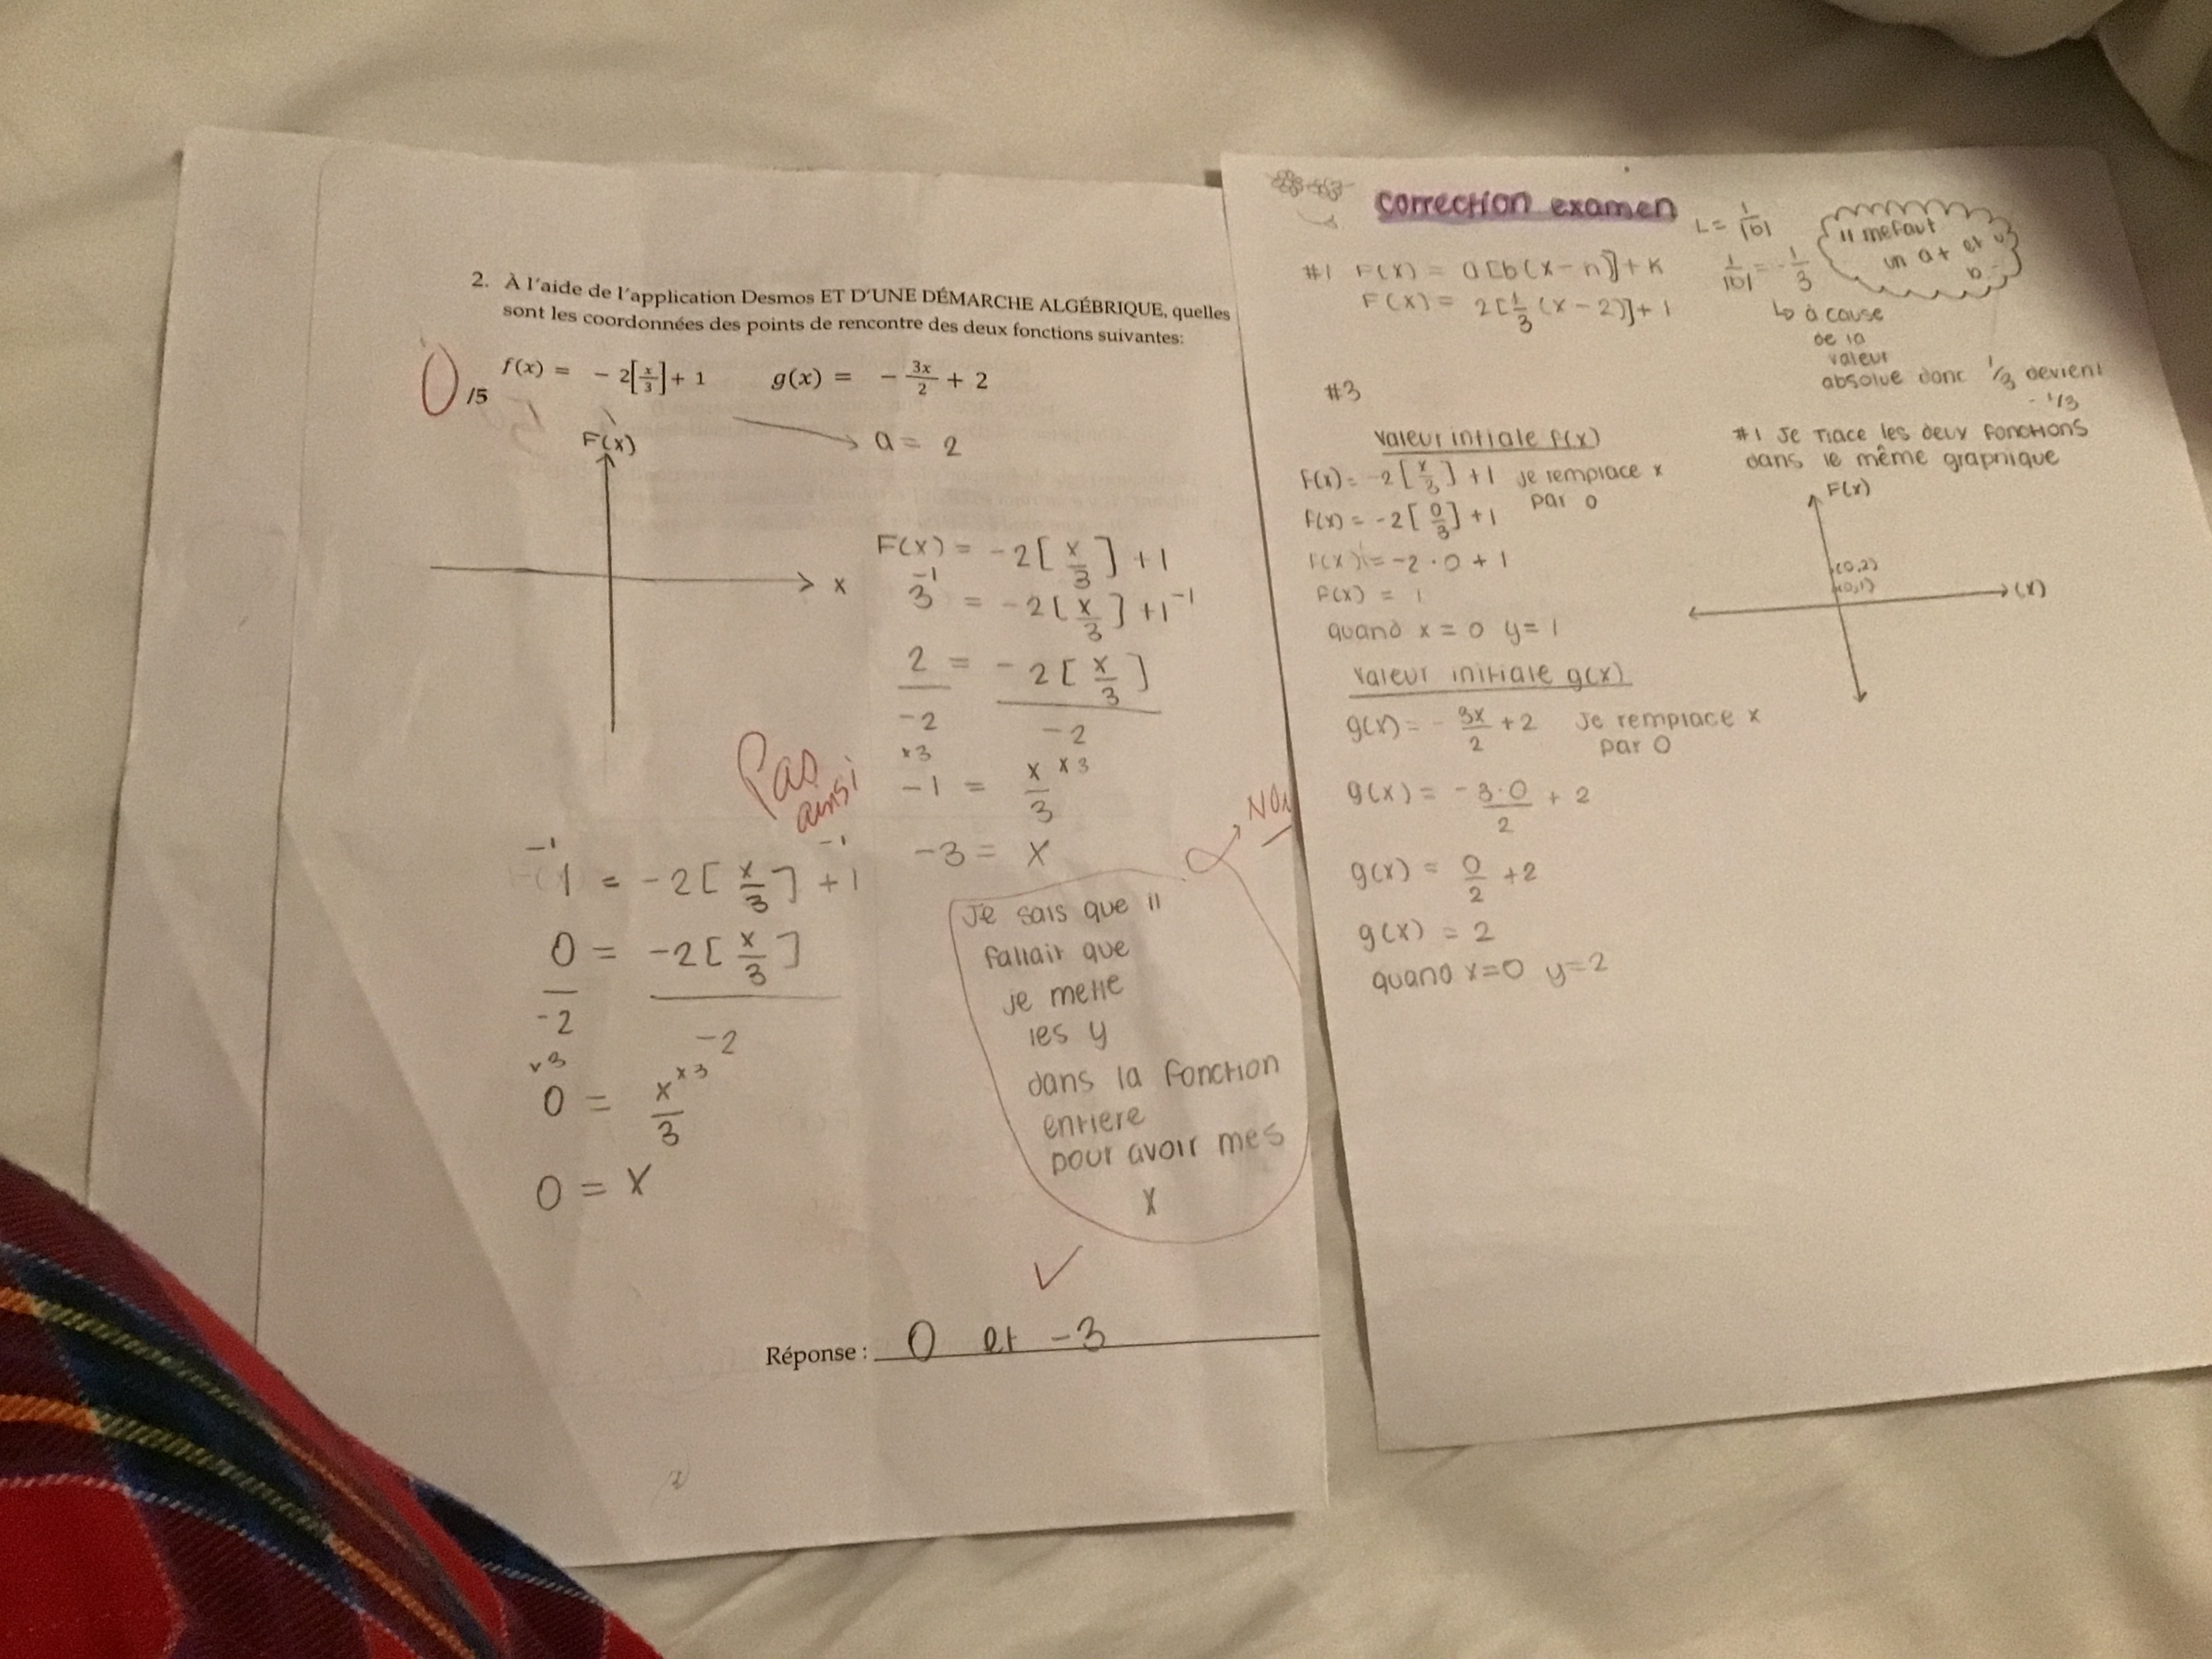 2. À l'aide de l'application Desmos ET D'UNE DÉMARCHE ALGÉBRIQUE, quelles
sont les coordonnées des points de rencontre des deux fonctions suivantes:
0/5
f(x) = - 2[x/3] + 1 g(x) = - 3x/2 + 2
a = 2
F(x)
x
F(x) = -2[x/3] +1
3 -1 = -2[x/3] +1 -1
2 = -2[x/3]
-2 -2
x3
-1 = x/3 x3
-3 = x
Pas
ainsi
-1 -1
1 = -2[x/3] +1
0 = -2[x/3]
-2 -2
x3
0 = x/3 x3
0 = x
NON
Je sais que il
fallait que
je mette
les y
dans la fonction
entiere
pour avoir mes
x
Réponse : 0 et -3
correction examen
#1 F(x) = a[b(x-h)]+k
F(x) = 2[1/3(x-2)]+1
L = 1/|b|
1/|b| = -1/3
Il me faut
un a+ et
b -
↳ à cause
de la
valeur
absolue donc 1/3 devient
-1/3
#3
valeur intiale f(x)
F(x)= -2[x/3] +1 je remplace x
par 0
f(x) = -2[0/3] +1
F(x) = -2·0+1
F(x) = 1
quand x=0 y=1
valeur initiale g(x)
g(x)= - 3x/2 +2 Je remplace x
par 0
g(x) = - 3·0/2 + 2
g(x) = 0/2 +2
g(x) = 2
quand x=0 y=2
#1 Je trace les deux fonctions
dans le même graphique
F(x)
(0,2)
(0,1)
(x)